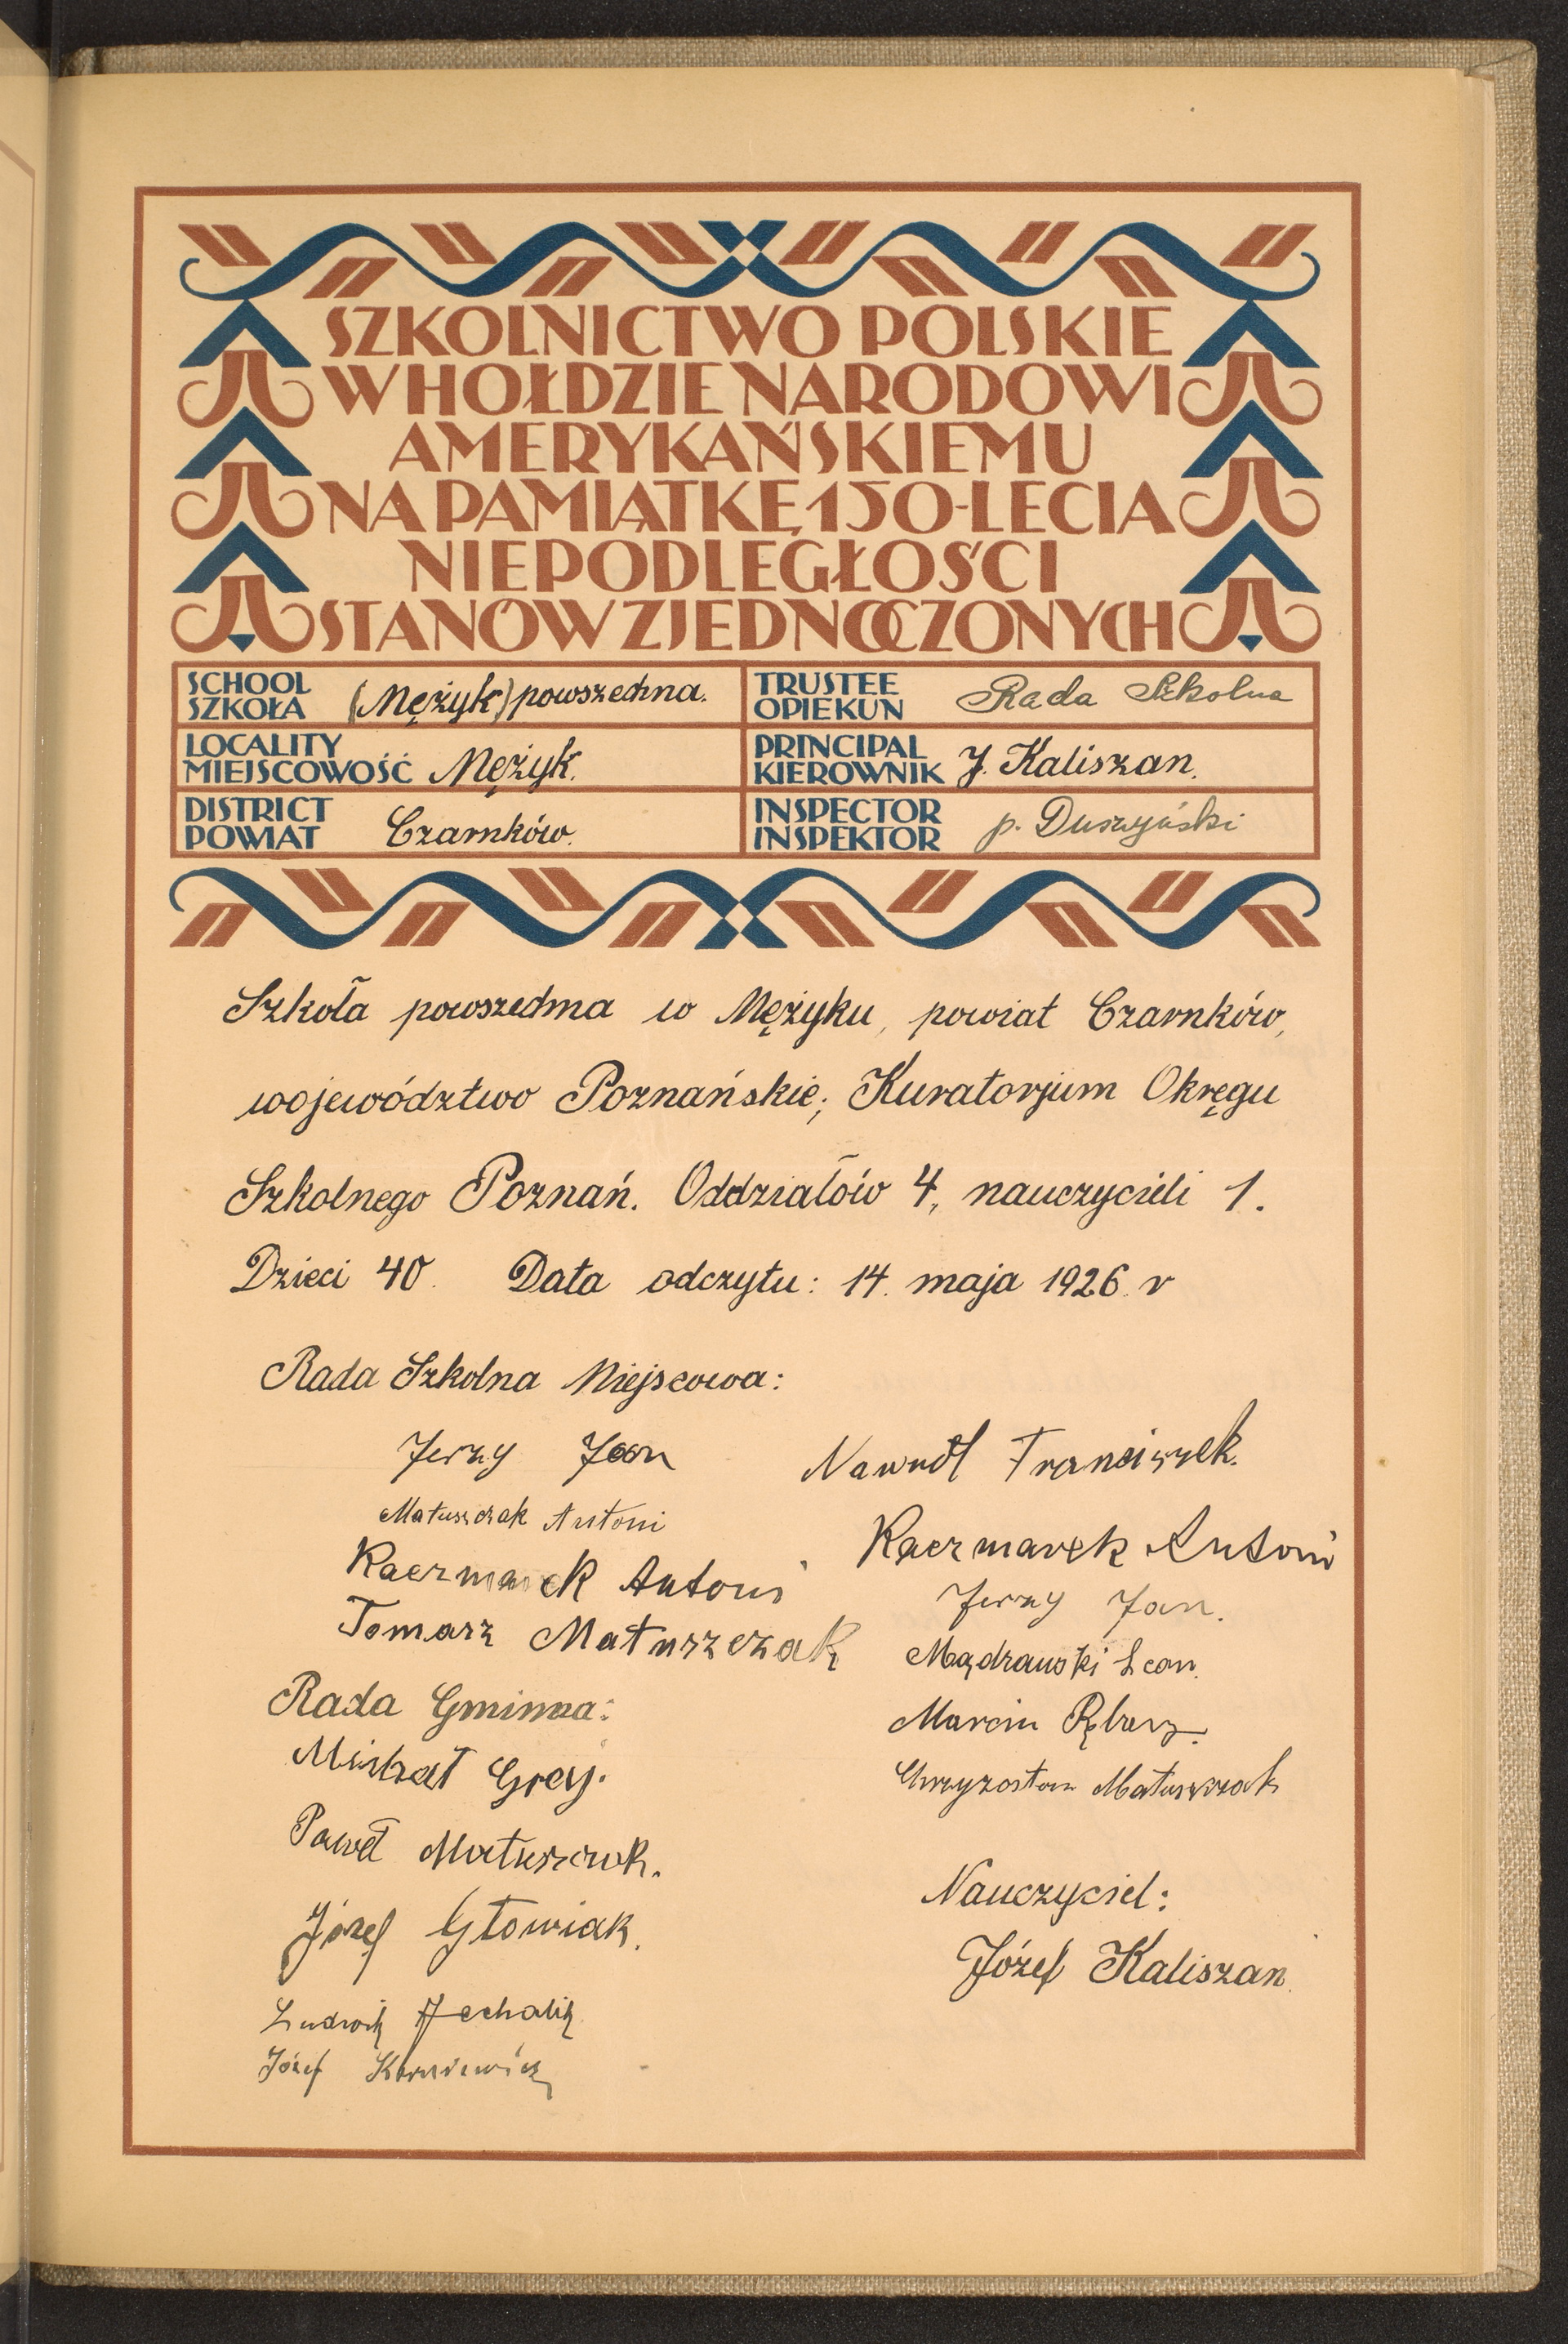 SZKOLNICTWO POLSKIE
W HOŁDZIE NARODOWI
AMERYKAŃSKIEMU
NA PAMIĄTKĘ 150-LECIA
NIEPODLEGŁOŚCI
STANÓW ZJEDNOCZONYCH
SCHOOL
SZKOŁA (Mężyk) powszechna.
TRUSTEE
OPIEKUN Rada Szkolna
LOCALITY
MIEJSCOWOŚĆ Mężyk.
PRINCIPAL
KIEROWNIK J. Kaliszan.
DISTRICT
POWIAT Czarnków.
INSPECTOR
INSPEKTOR p. Duszyński
Szkoła powszechna w Mężyku, powiat Czarnków,
województwo Poznańskie; Kuratorjum Okręgu
Szkolnego Poznań. Oddziałów 4, nauczycieli 1.
Dzieci 40. Data odczytu: 14. maja 1926. r
Rada Szkolna Miejscowa:
Jerzy Jan
Matuszczak Antoni
Kaczmarek Antoni
Tomasz Matuszczak
Rada Gminna:
Michał Grej.
Paweł Matuszczak.
Józef Głowiak.
Ludwik
Józef
Nawrot Franciszek.
Kaczmarek Antoni
Jerzy Jan.
Mądrawski Leon.
Marcin
Chryzostom Matuszczak
Nauczyciel:
Józef Kaliszan.